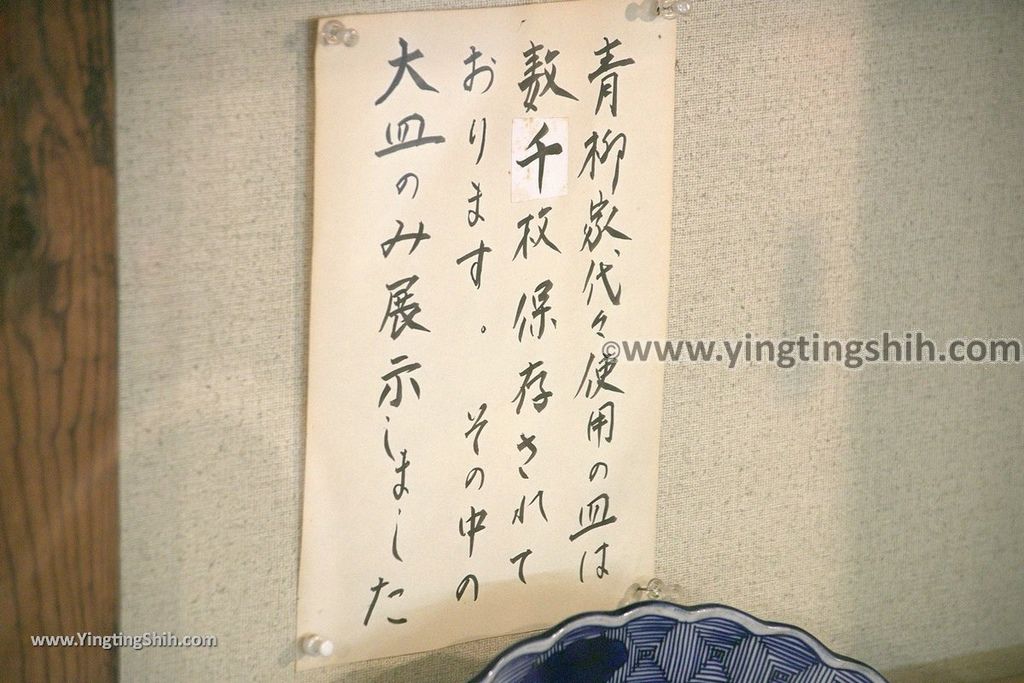 青柳家、代々使用の皿は
数千枚保存されて
おります。その中の
大皿のみ展示しました
©www.yingtingshih.com
www.YingtingShih.com